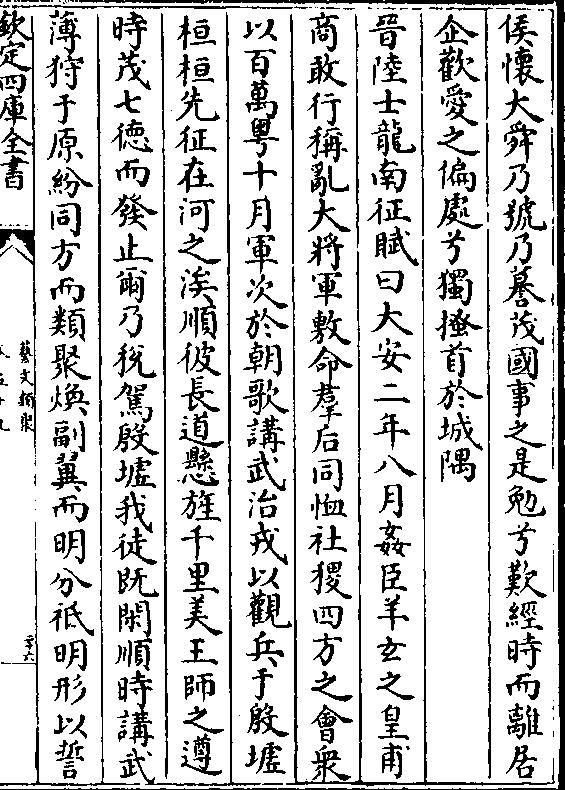 俟懷大舜乃號乃慕茂國事之是勉兮歎經時而離居
企歡愛之偏處兮獨搔首於城隅
晉陸士龍南征賦曰大安二年八月姦臣羊玄之皇甫
商敢行稱亂大將軍敷命羣后同恤社稷四方之會衆
以百萬粤十月軍次於朝歌講武治戎以觀兵于殷墟
桓桓先征在河之涘順彼長道懸旌千里美王師之遵
時茂七德而發止爾乃稅駕殷墟我徒既閑順時講武
薄狩于原紛同方而類聚煥副翼而明分祗明形以誓
欽定四庫全書
藝文類聚
卷五十九
二十六